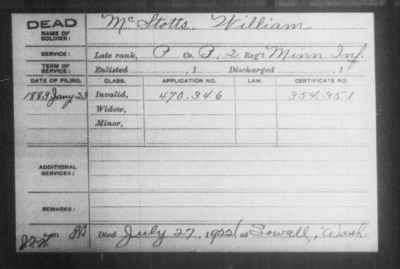 DEAD Mc Stotts, William
NAME OF SOLDIER:
SERVICE: Late rank, P Co. B, 2 Reg't Minn Inf.
TERM OF SERVICE: Enlisted , 1 Discharged , 1
DATE OF FILING. CLASS. APPLICATION NO. LAW. CERTIFICATE NO.
1883 Jany 23 Invalid, 470.346 354.351
Widow,
Minor,
ADDITIONAL SERVICES:
REMARKS:
Died July 27, 1922, at Sowall, Wash.